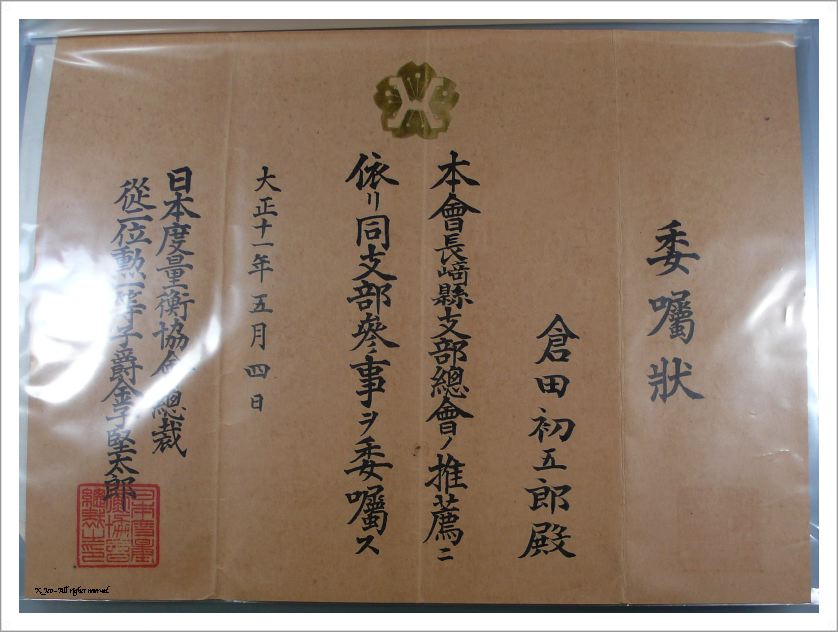 委囑狀
倉田初五郎殿
本會長﨑縣支部總會ノ推薦ニ
依リ同支部參事ヲ委囑ス
大正十一年五月四日
日本度量衡協會總裁
從二位勲一等子爵金子堅太郎
日本度量
衡協會
總裁之印